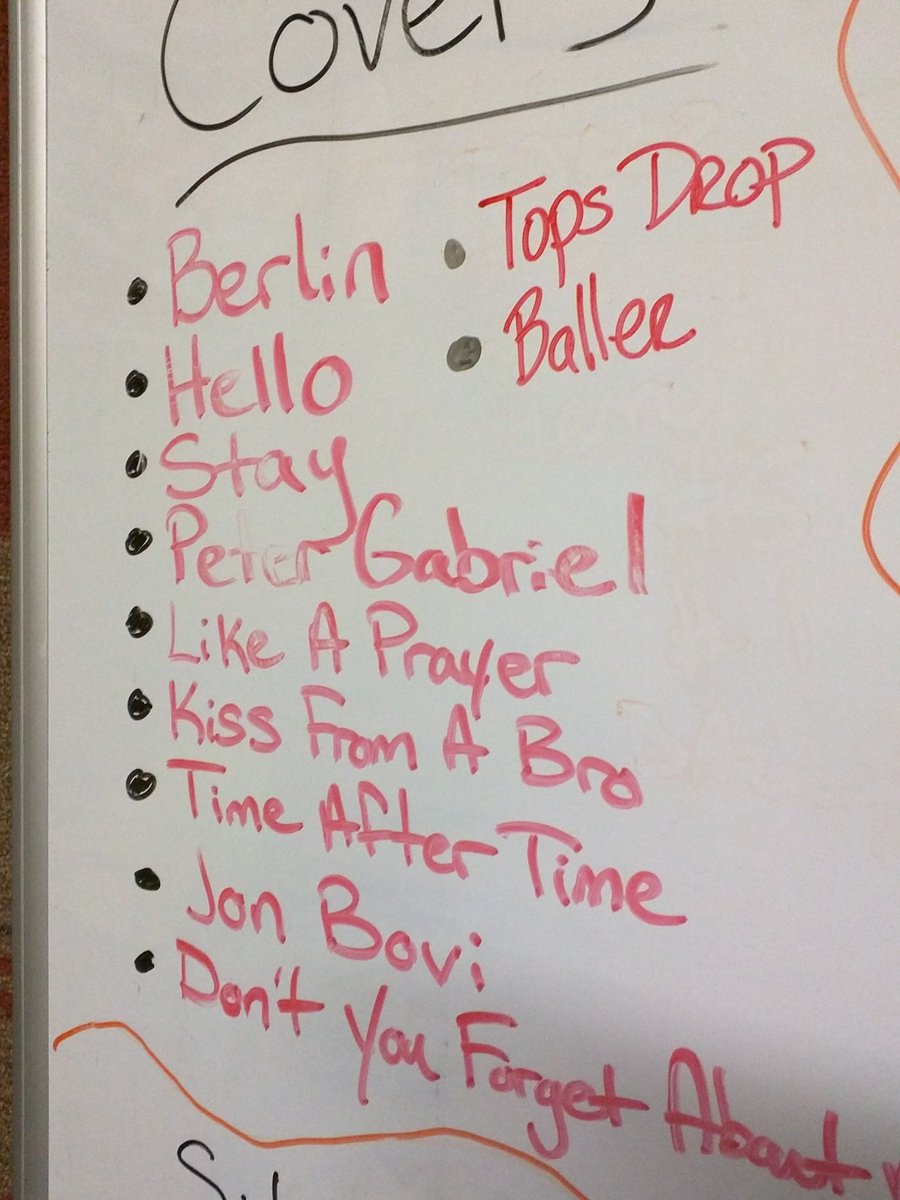 Covers
Berlin
Hello
Stay
Peter Gabriel
Like A Prayer
Kiss From A Bro
Time After Time
Jon Bovi
Don't You Forget About
Tops DROP
Baller